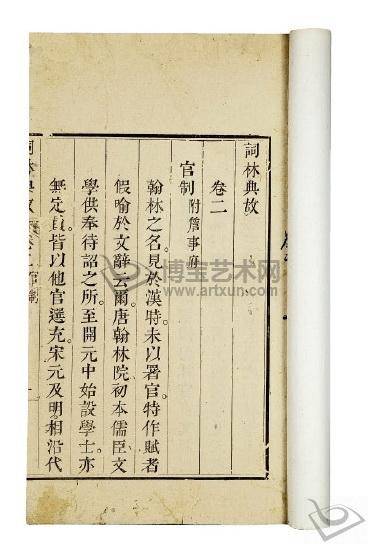 詞林典故
卷二
官制 附詹事府
翰林之名。見於漢時。未以署官。特作賦者
假喻於文辭云爾。唐翰林院初本儒臣文
學供奉待詔之所。至開元中始設學士。亦
無定員。皆以他官選充。宋元及明。相沿代
詞林典故 卷二 官制 一
博宝艺术网
www.artxun.com